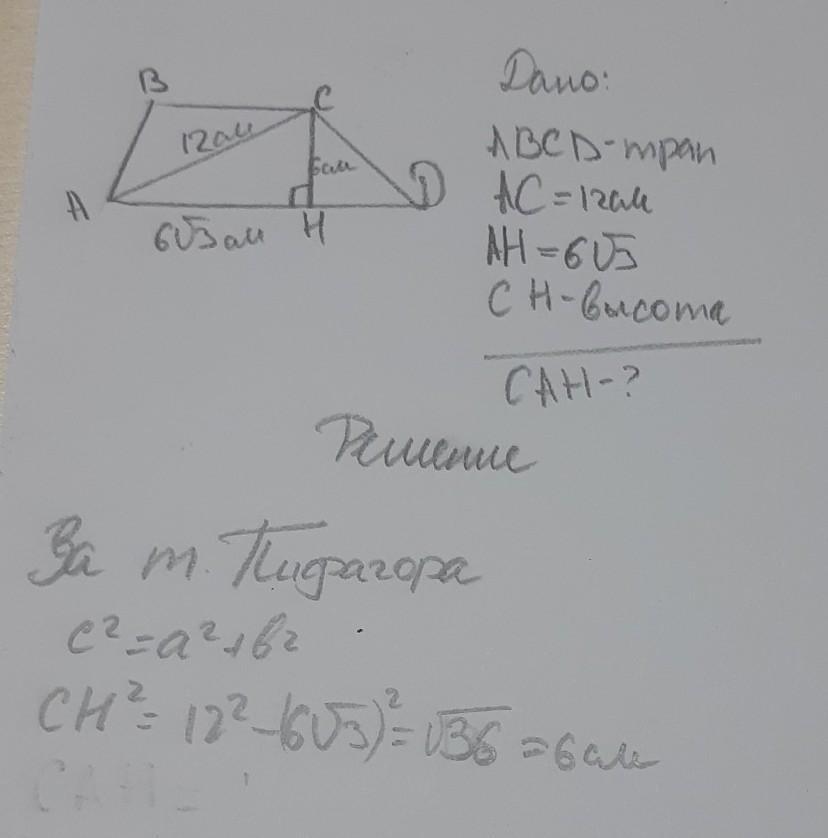 B
C
12см
6см
A
H
D
6√3 см
Дано:
ABCD-трап
AC=12см
AH=6√3
CH-высота
CAH-?
Решение
За т. Пифагора
c²=a²+b²
CH²=12²-(6√3)²=√36=6см
CAH=